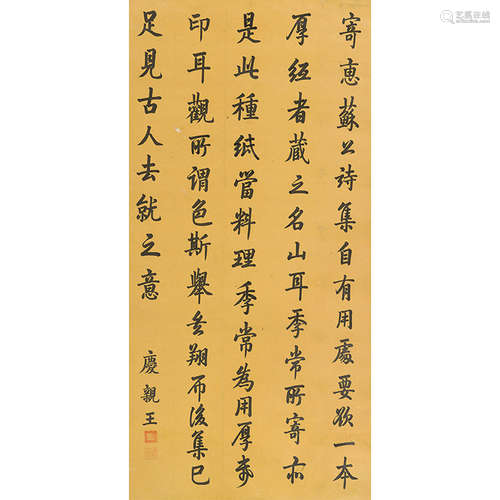 寄惠蘇公詩集自有用處要欲一本
厚紙者藏之名山耳季常所寄亦
是此種紙當料理季常為用厚
印耳觀所謂色斯舉矣翔而後集已
足見古人去就之意
慶親王